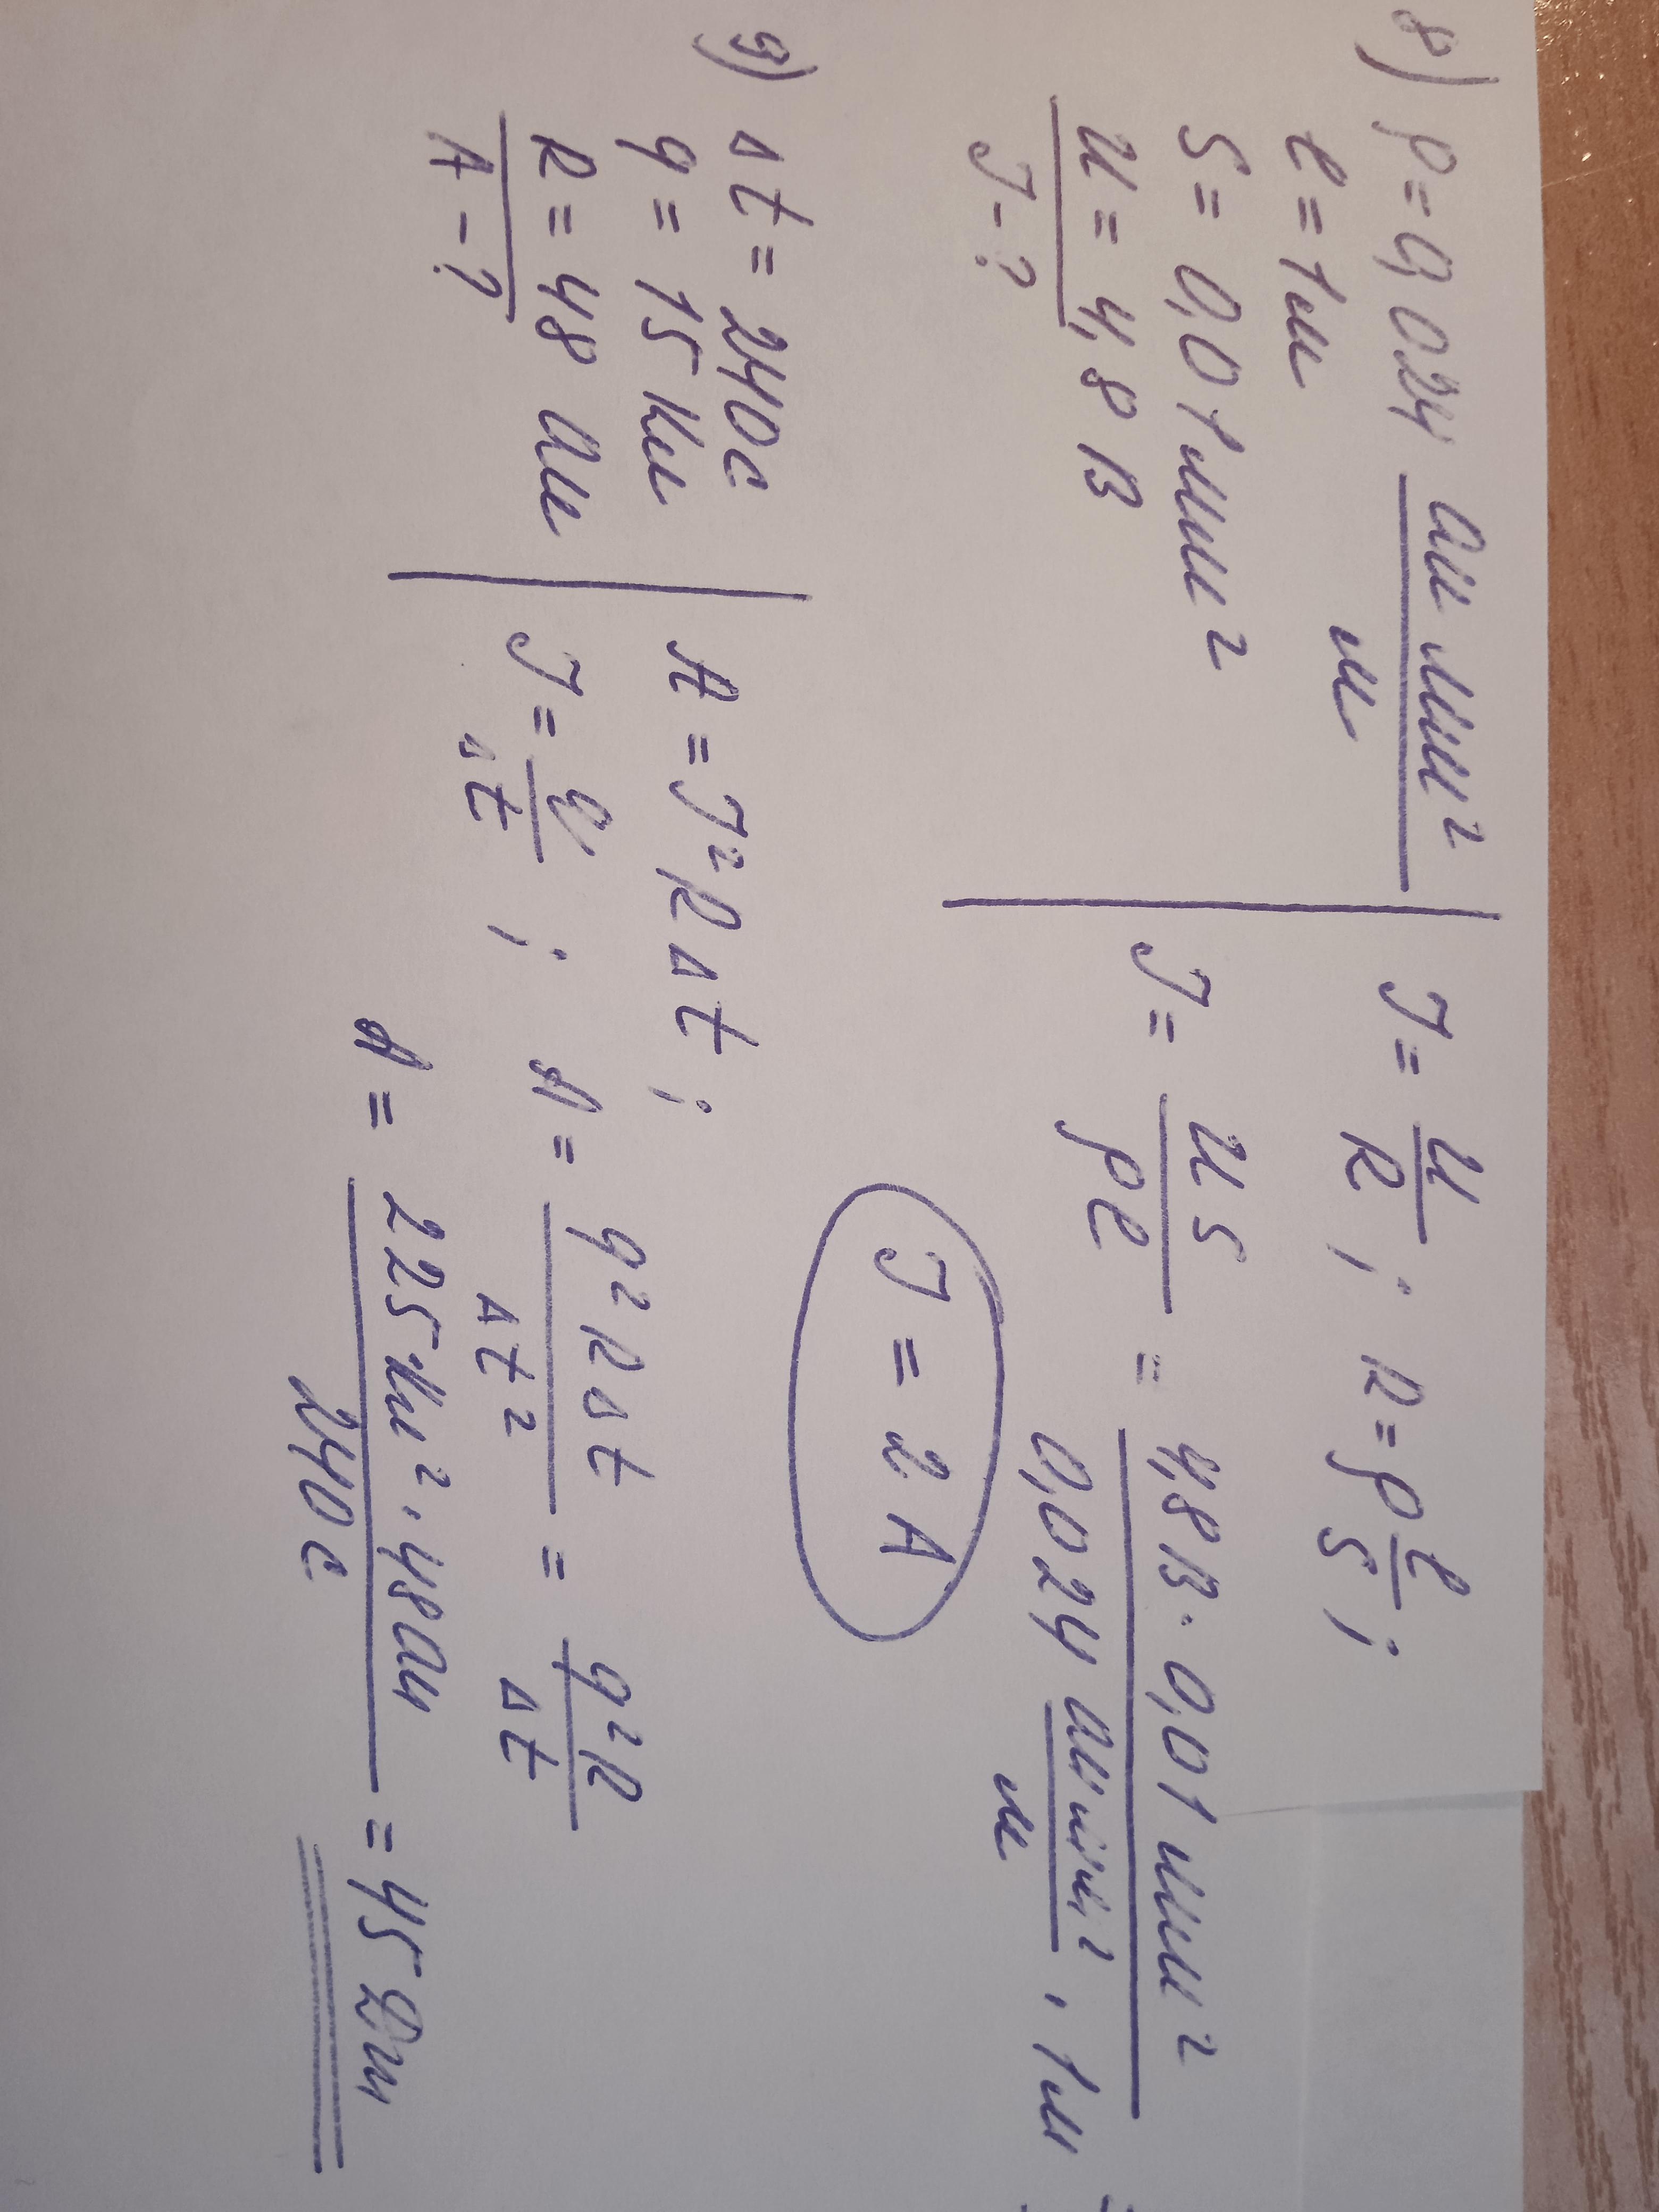 8) ρ = 0,024 Ом мм²/м
l = 1м
S = 0,01 мм²
U = 4,8 В
J - ?
J = U/R ; R = ρ l/S ;
J = US/ρl = 4,8 В · 0,01 мм² / 0,024 Ом мм²/м · 1м =
J = 2 A
9) Δt = 240с
q = 15 Кл
R = 48 Ом
A - ?
A = J² R Δt ;
J = q/Δt ; A = q² R Δt / Δt² = q² R / Δt
A = 225 Кл² · 48 Ом / 240с = 45 Дж